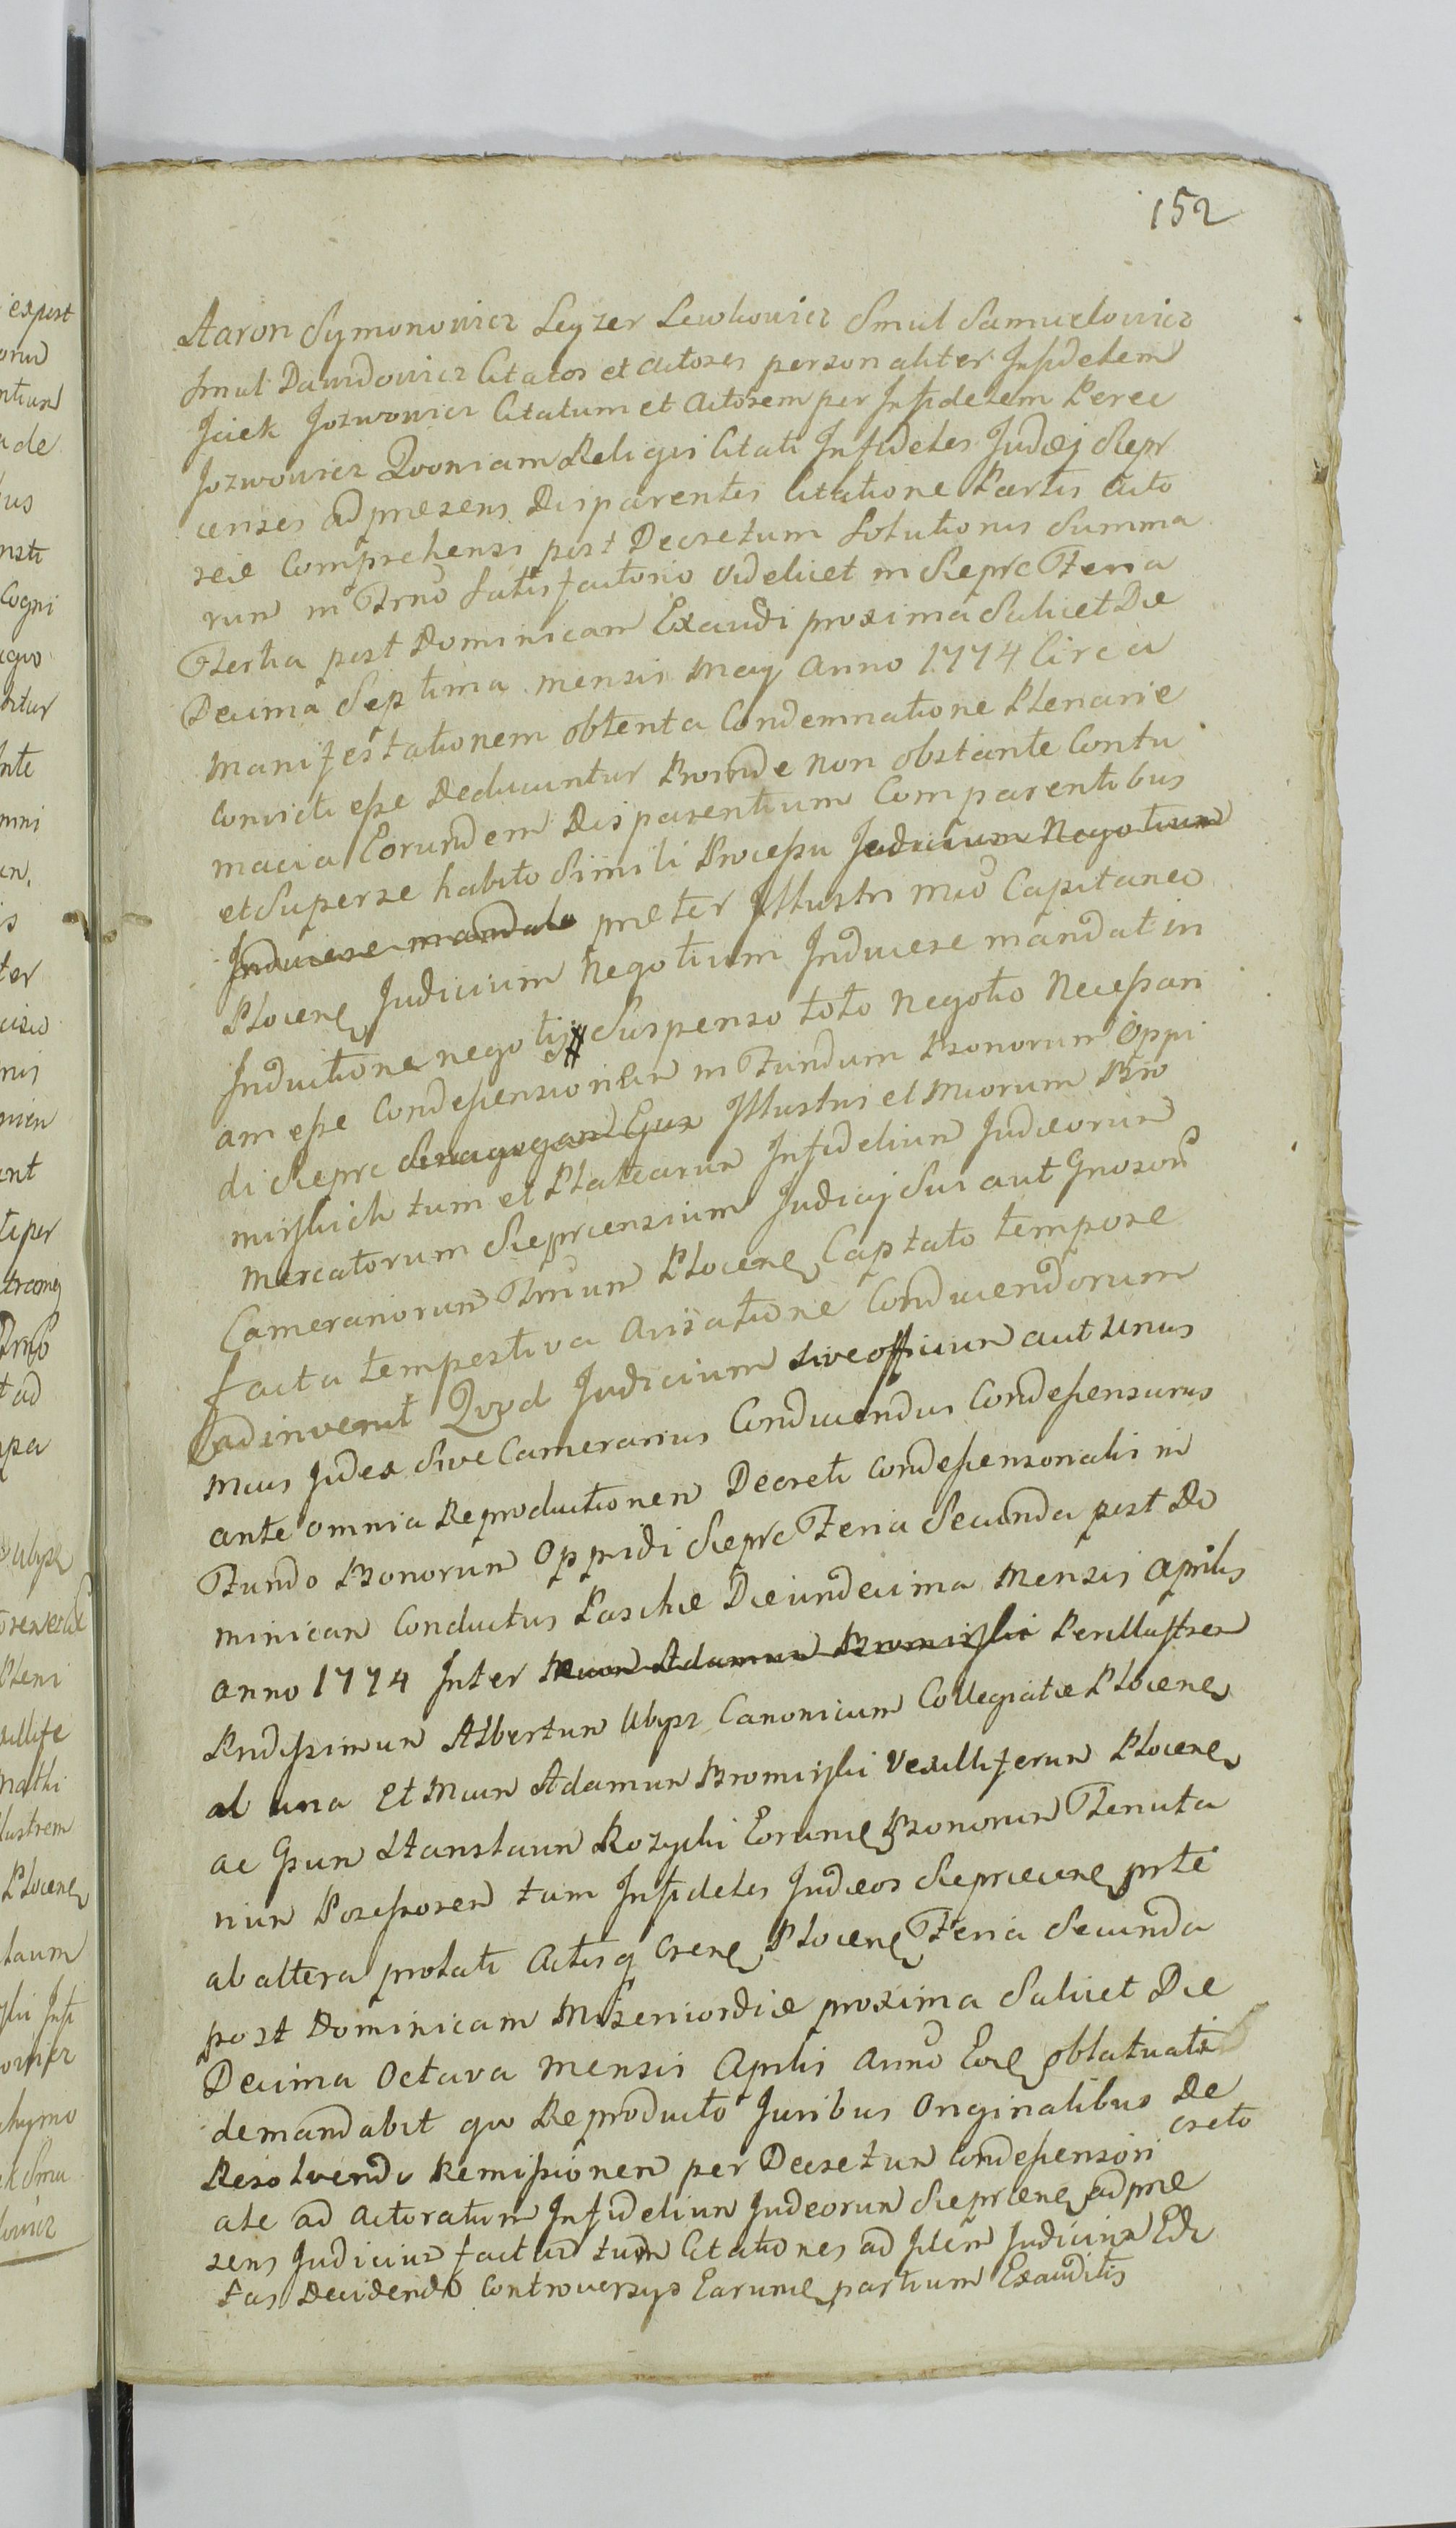 152
Aaron Symonowicz Leyzer Lewkowicz Smul Samuelowicz
Smul Dawidowicz Citatos et Actores personaliter Infidelem
Jciek Jozwowicz Citatum et Actorem per Infidelem Perec
Jozwowicz Qvoniam Reliqvi Citati Infideles Judæj Siepr
censes ad præsens Disparentes Citatione Partis Acto
reæ Comprehensi post Decretum Solutionis Summa
rum in Trno Satisfactorio videlicet in Sieprc Feria
Tertia post Dominicam Exaudi proxima Salicet Die
Decima Septima mensis May Anno 1774 Circa
Manifestationem obtenta Condemnatione Plenarie
Convicti esse Deducuntur Proinde non obstante Contu
macia Eorundem Disparentium Comparentibus
et Superse habito Simili Processu Judicium Negotium
Inducere mandato præter Illustri Mco Capitaneo
Plocene Judicium Negotium Inducere mandat in
Inductione negotij Suspenso toto negotio Necessari
am esse Condessensionem in Fundum Bonorum Oppi
di Sieprc Sinagogam Ejus Illustris et Mcorum Bro
mirskich tum et Platearum Infidelium Judæorum
Mercatorum Sieprcensium Judicij Sui aut Gnosorum
Camerariorum Trnum Plocene Captato tempore
facta tempestiva avisatione Conducendorum
adinvenit Qvod Judicium sive officium aut Unus
Mcus Judex Sive Camerarius Conducendus Condessensurus
ante omnia Reproductionem Decreti Condessensorialis in
Fundo Bonorum Oppidi Sieprc Feria Secunda post Do
minicam Conductus Paschæ Die undecima Mensis Aprilis
Anno 1774 Inter Mcum Adamum Bromirski Perillustrem
Rndissimum Albertum Ubysz Canonicum Collegiatæ Plocene
ab una Et Mcum Adamum Bromirski Vexilliferum Plocene
ac Gsum Stanslaum Rozycki Eorumq Bonorum Tenuta
rium Possessorem tum Infideles Judæos Sieprcene prte
ab altera prolati Actisq Crene Plocene Feria Secunda
post Dominicam Misericordiæ proxima Salicet Die
Decima Octava Mensis Aprilis Anno Eoe oblatuati
demandabit qvo Reproducto Juribus Originalibus De
creto
Resolvendo Remissionem per Decretum Condessensori
ale ad Actoratum Infidelium Judeorum Sieprcene ad præ
sens Judicium factam tum Citationes ad Idem Judicium Edi
tas Decidendo Controversys Earumq partium Exauditis